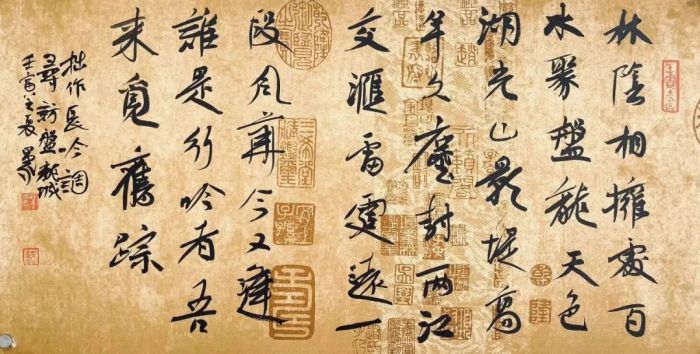 林陰相擁處百
水聚盤龍天色
湖光山影堤高
年久塵封兩江
交滙雷霆遠一
段風華今又逢
誰是行吟者吾
來覓舊踪
拙作長吟調
尋訪盤龍城
壬寅之夏